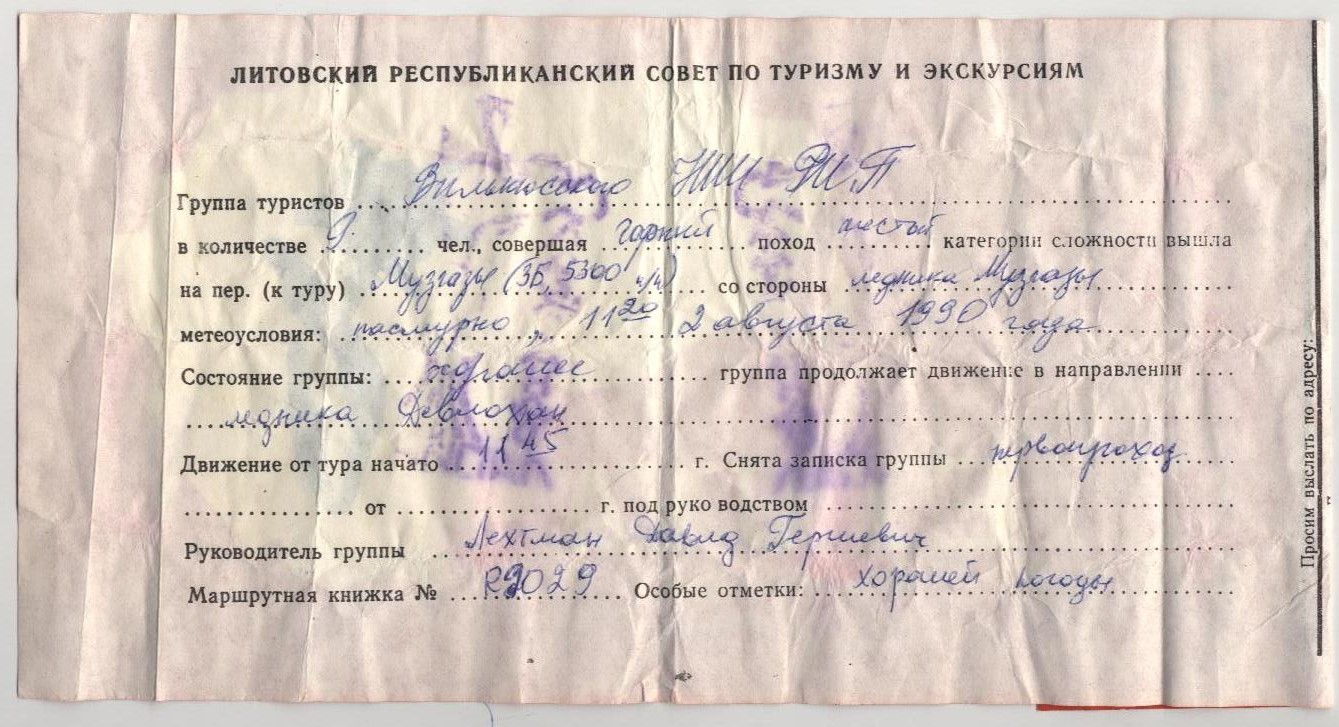 ЛИТОВСКИЙ РЕСПУБЛИКАНСКИЙ СОВЕТ ПО ТУРИЗМУ И ЭКСКУРСИЯМ
Группа туристов Вильнюсского НИИ РИП
в количестве 9 чел., совершая горный поход шестой категории сложности вышла
на пер. (к туру) Музгазы (3Б, 5300 со стороны ледника Музгазы
метеоусловия: пасмурно, 11 20 2 августа 1990 года
Состояние группы: хорошее группа продолжает движение в направлении
ледника Девлохан
Движение от тура начато 11 45 г. Снята записка группы первопроход
от г. под руко водством
Руководитель группы Лехтман Давид Гершевич
Маршрутная книжка № 2029 Особые отметки: хорошей погоды
Просим выслать по адресу: